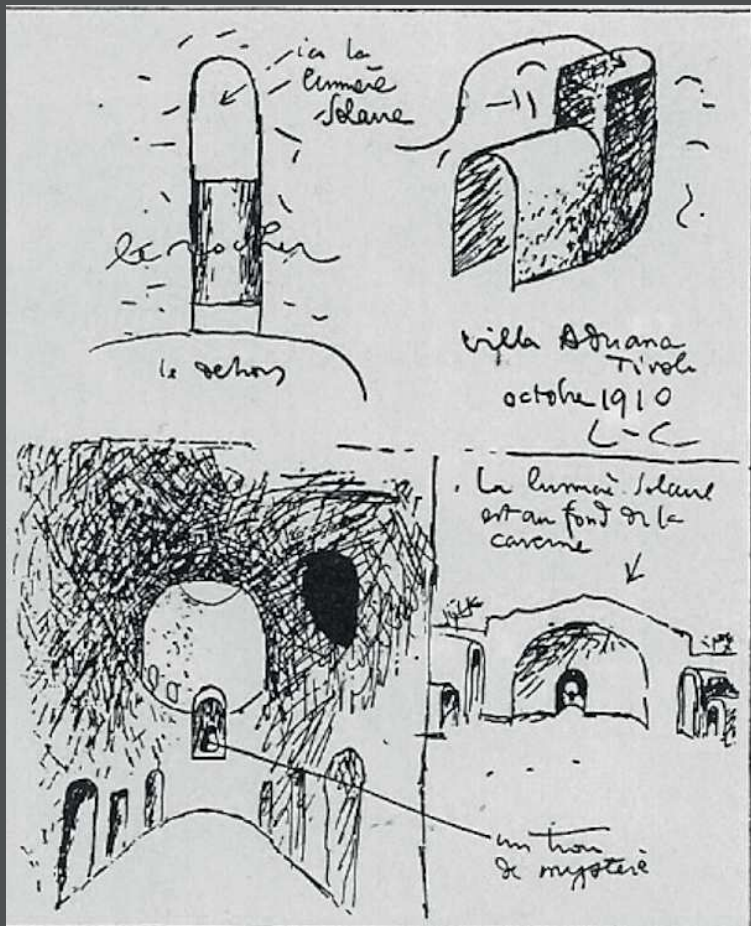 ici la
lumière
Solaire
le rocher
le dehors
villa Adriana
Tivoli
octobre 1910
L-C
. La lumière Solaire
est au fond de la
caverne
un trou
de mystère